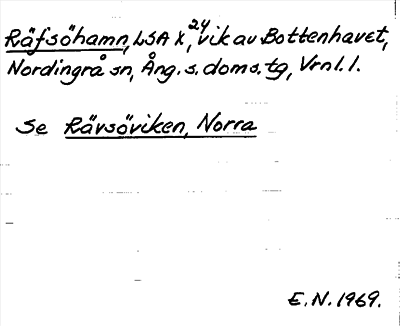 Räfsöhamn, LSA X, 24 vik av Bottenhavet,
Nordingrå sn, Ång. s. doms. tg, Vrnl. l.
Se Rävsöviken, Norra
E.N. 1969.